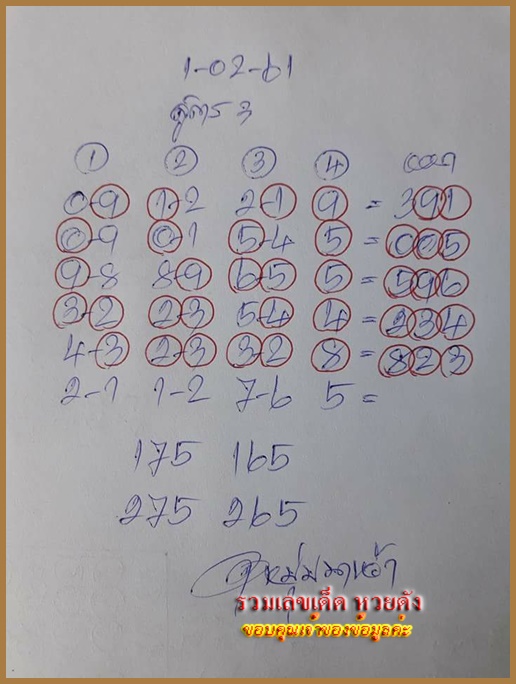 1-02-61
สูตร 3
① ② ③ ④ ออก
0-9 1-2 2-1 9 = 391
0-9 0-1 5-4 5 = 005
9-8 8-9 6-5 5 = 596
3-2 2-3 5-4 4 = 234
4-3 2-3 3-2 8 = 823
2-1 1-2 7-6 5 =
175 165
275 265
รวมเลขเด็ด หวยดัง
ขอบคุณเจ้าของข้อมูลค่ะ